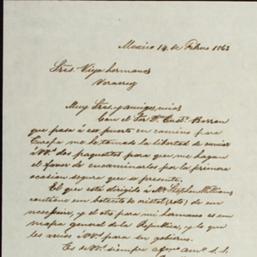 Mexico 14 de Febro 1863
Sres. Viya hermanos
Veracruz
Muy Sres. y amigos mios
Con el Sor Dn. Eust. Barron
que pasa á ese puerto en camino para
Europa me he tomado la libertad de enviar
á VV. los paquetes para que me hagan
el favor de encaminarlos por la primera
ocasion segura que se presente.
El que está dirigido á Mr. Stephen Williams
contiene un de cristal (roto) de un
y el otro para mi hermano es un
mapa general de la Republica, y lo que
les aviso á VV. para su gobierno.
Es de VV. siempre afmo. amo. q. s.